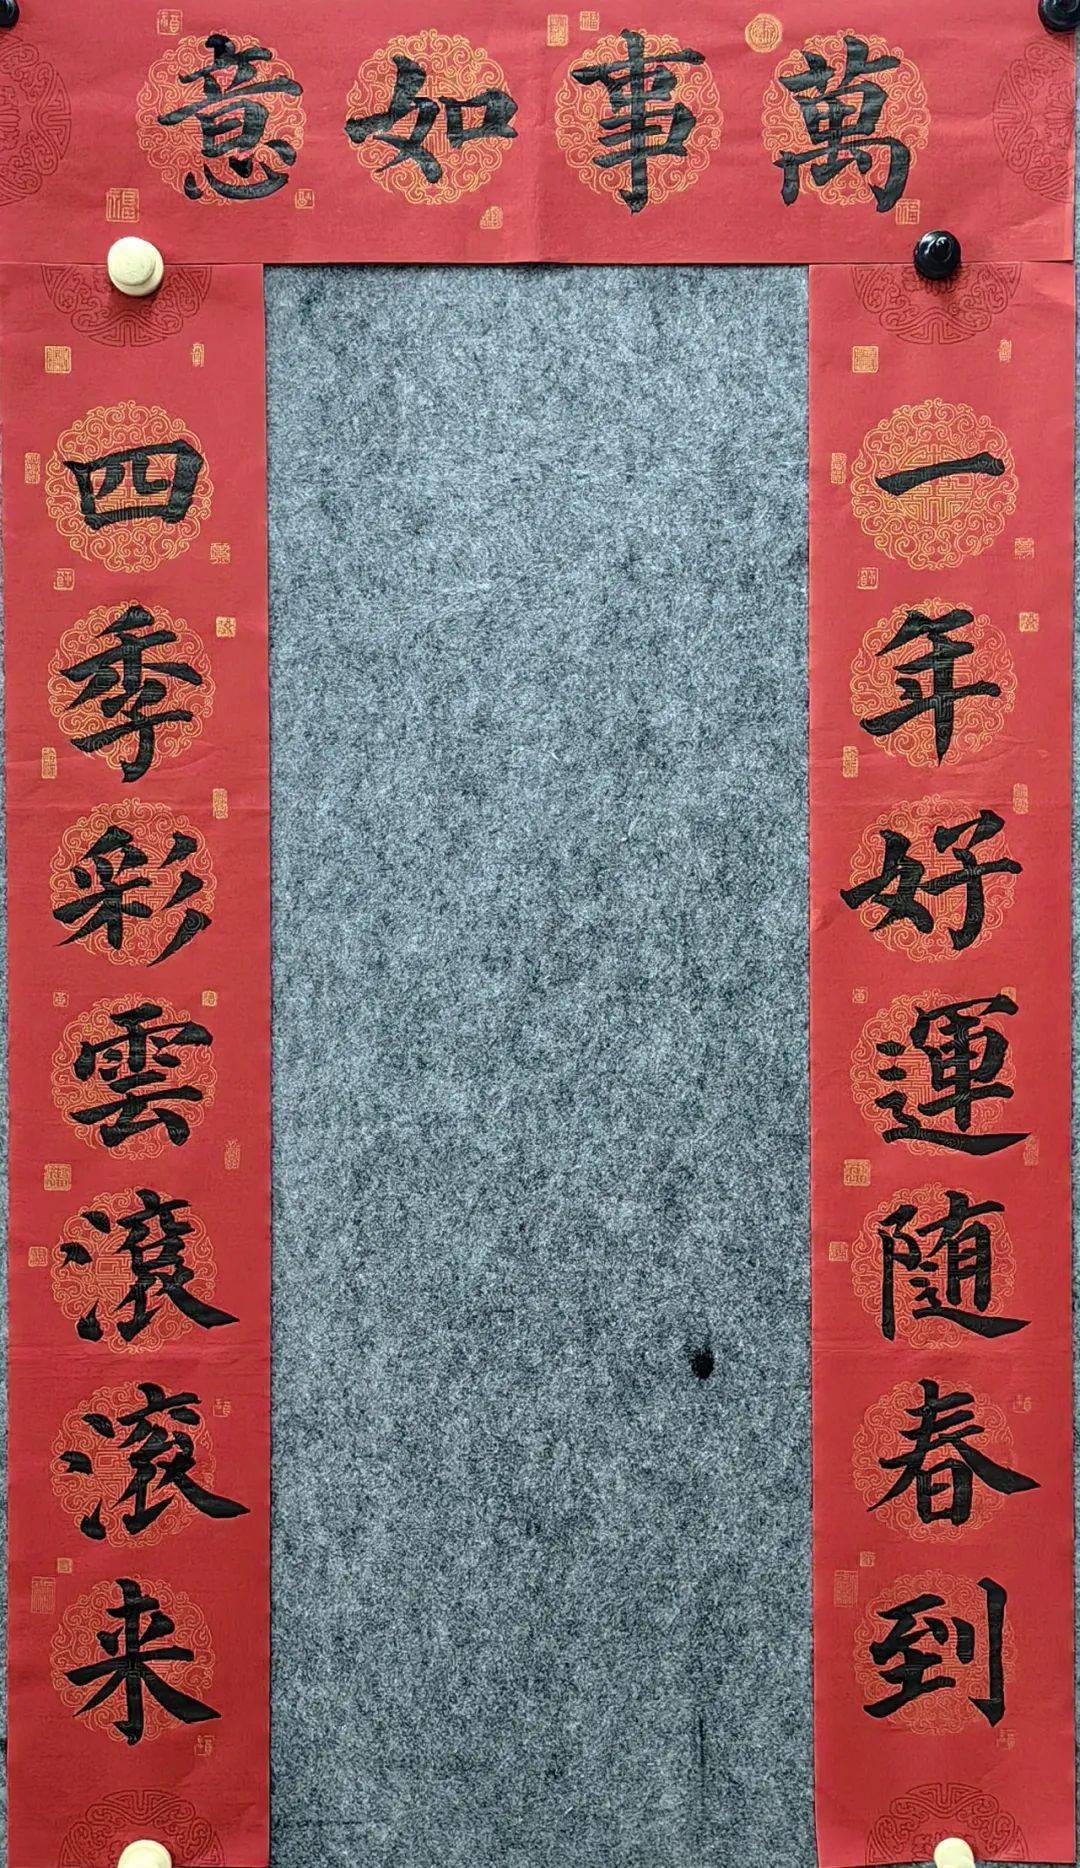 萬事如意
一年好運随春到
四季彩雲滚滚来